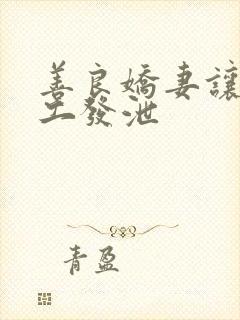 善良嬌妻讓
工發泄
青盈